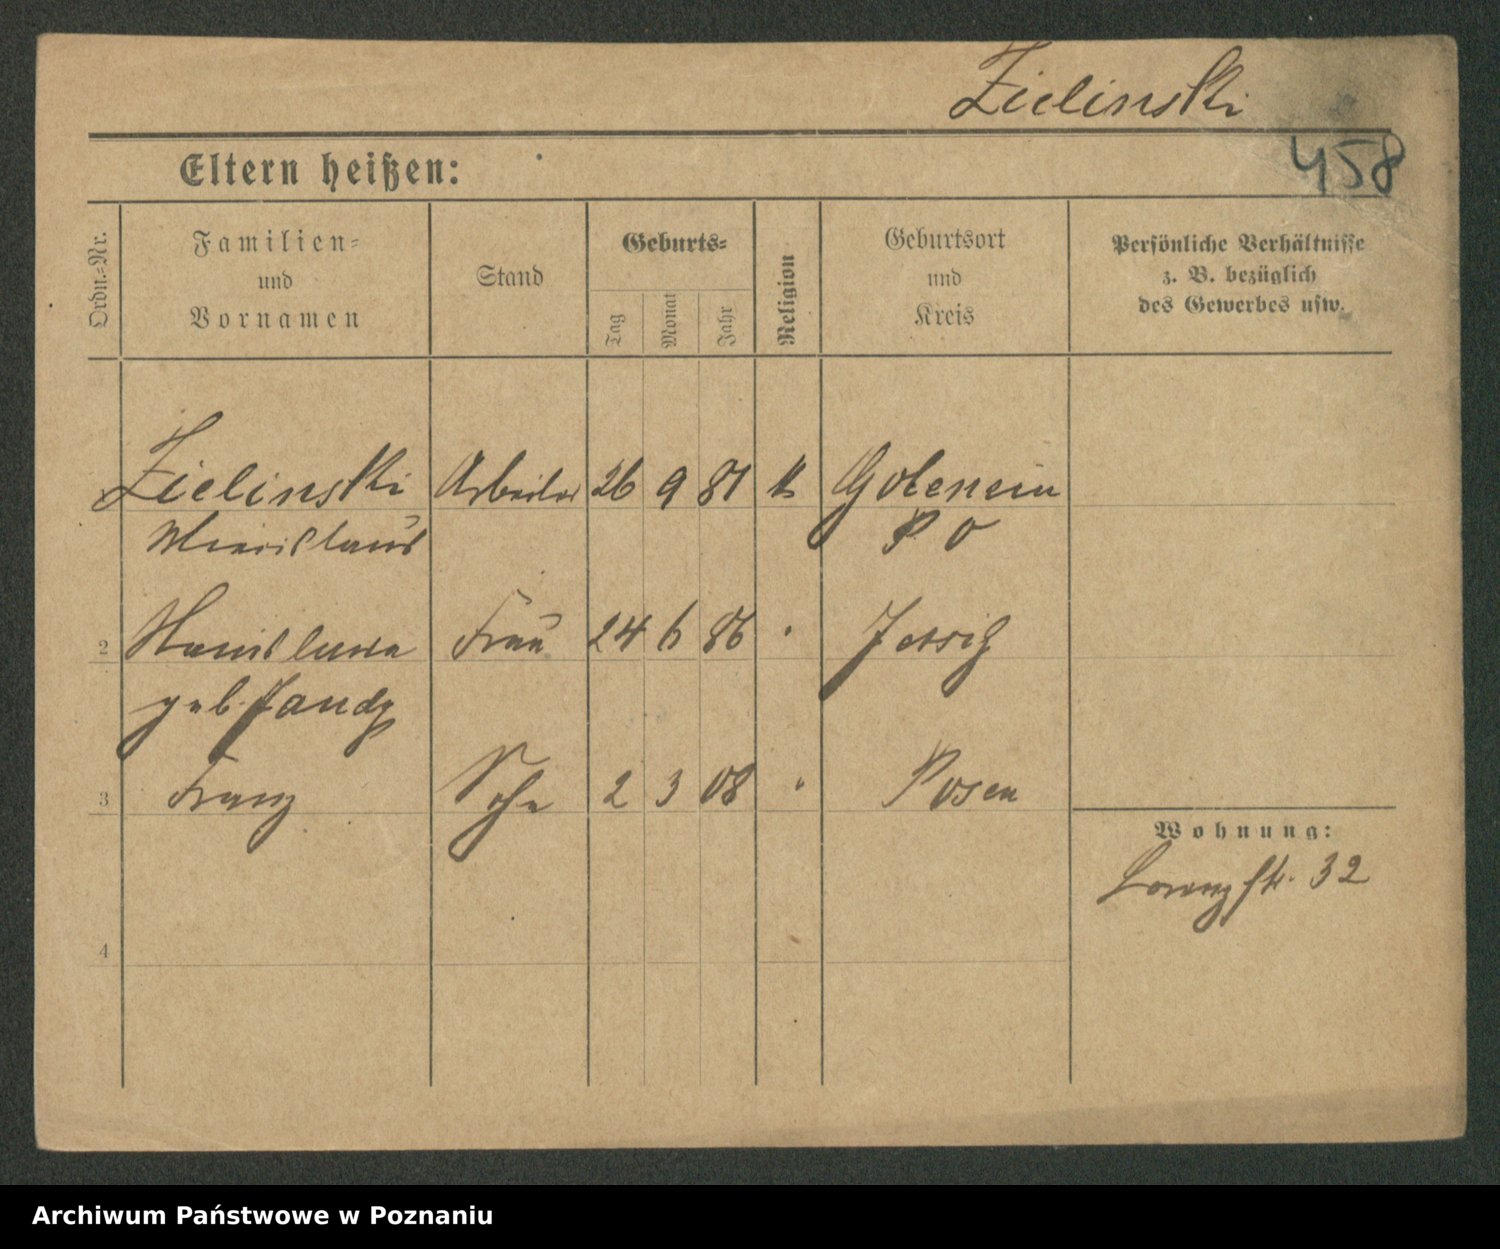 Zielinski
458
Eltern heißen:
Ordn.-Nr.
Familien-
und
Vornamen
Stand
Geburts-
Tag
Monat
Jahr
Religion
Geburtsort
und
Kreis
Persönliche Verhältnisse
z. B. bezüglich
des Gewerbes usw.
Zielinski Arbeiter 26 9 81 k Golencin
PO
2 Stanislawa Frau 24 6 86 " Jersitz
geb.
3 Franz Sohn 2 3 08 " Posen
Wohnung:
Lorenzstr. 32
4
Archiwum Państwowe w Poznaniu